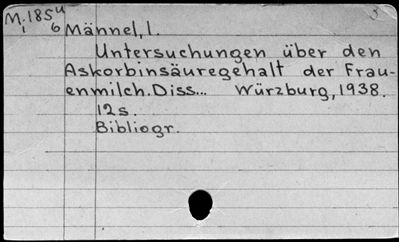 M.1854
1 6 Männel, l.
Untersuchungen über den
Askorbinsäuregehalt der Frau-
enmilch. Diss... Würzburg, 1938.
12s.
Bibliogr.